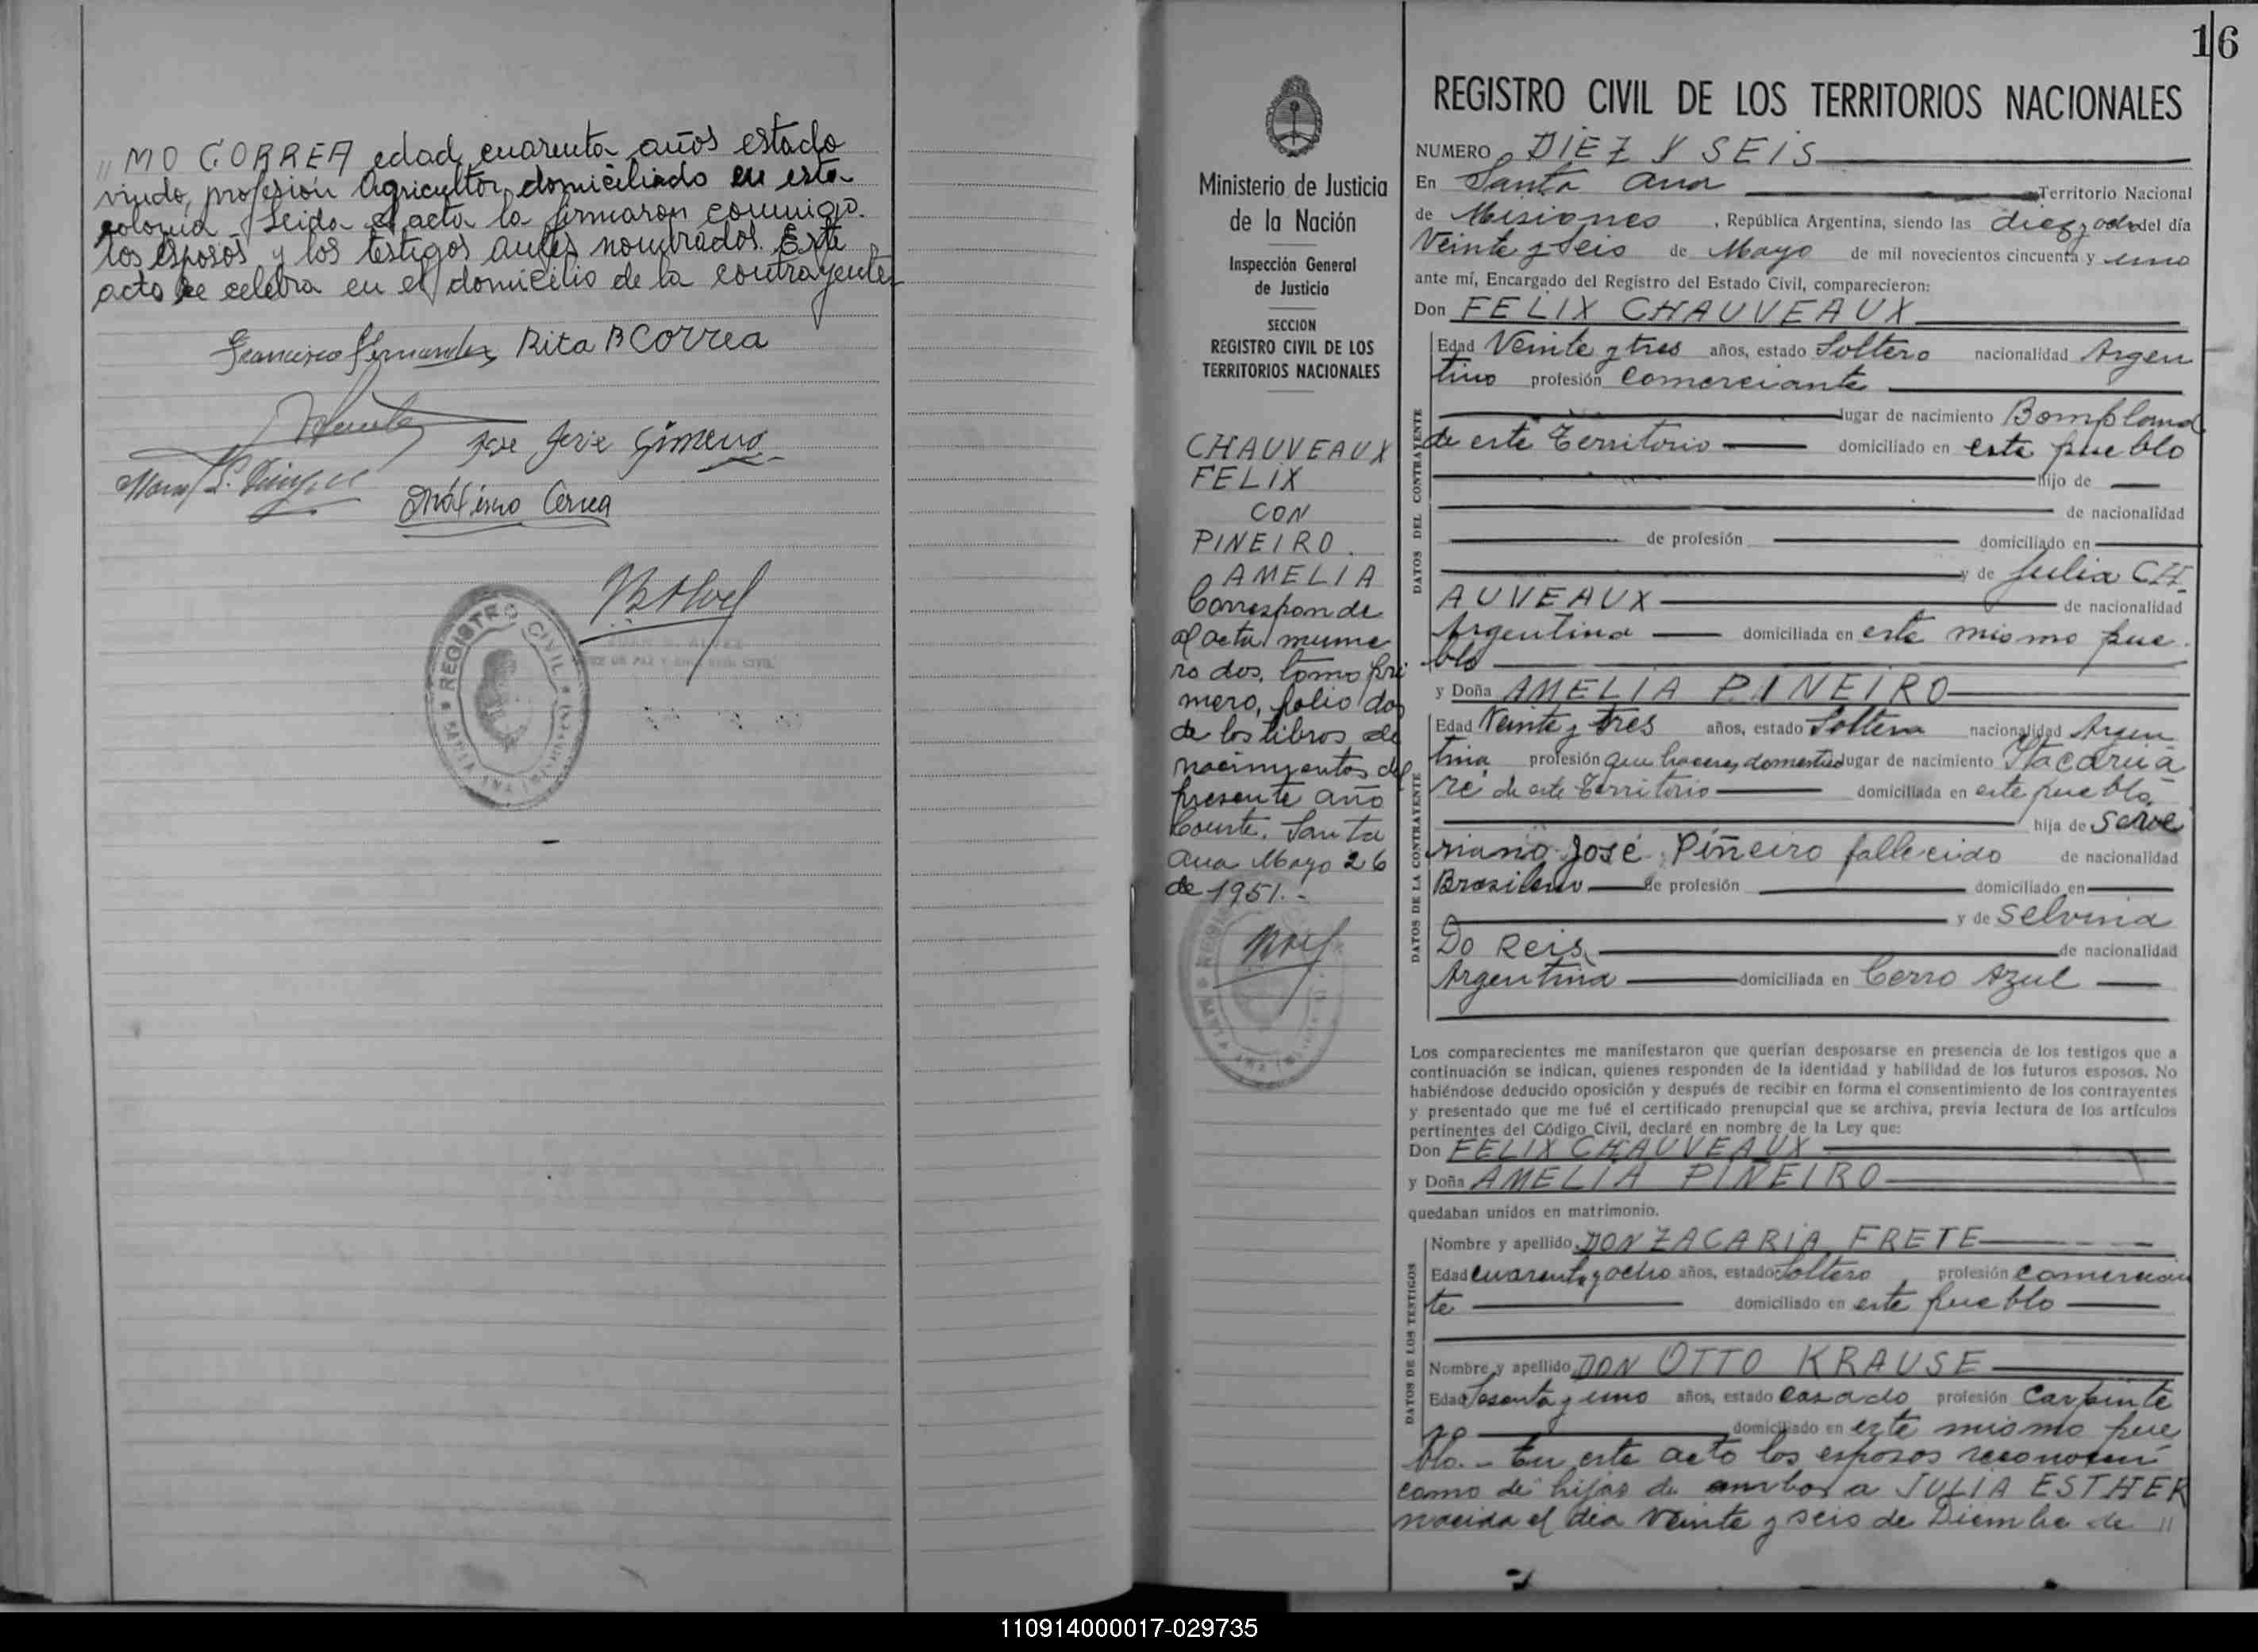 " MO CORREA edad cuarenta años estado
viudo, profesión Agricultor domiciliado en esta
colonia Leida el acta la firmaron conmigo.
los esposos y los testigos antes nombrados. Este
acto se celebra en el domicilio de la contrayente
Francisco Fernandez Rita B Correa
Jose Gimeno
Máximo Correa
REGISTRO CIVIL
SANTA ANA (Misiones)
16
Ministerio de Justicia
de la Nación
Inspección General
de Justicia
SECCION
REGISTRO CIVIL DE LOS
TERRITORIOS NACIONALES
CHAUVEAUX
FELIX
CON
PINEIRO.
AMELIA
Corresponde
al acta nume
ro dos, tomo pri
mero, folio dos
de los libros de
nacimientos del
presente año
Conste. Santa
Ana Mayo 26
de 1951.-
REGISTRO CIVIL DE LOS TERRITORIOS NACIONALES
NUMERO DIEZ Y SEIS
En Santa Ana Territorio Nacional
de Misiones, República Argentina, siendo las diez y ocho del día
Veinte y seis de Mayo de mil novecientos cincuenta y uno
ante mí, Encargado del Registro del Estado Civil, comparecieron:
Don FELIX CHAUVEAUX
DATOS DEL CONTRAYENTE
Edad Veinte y tres años, estado Soltero nacionalidad Argen
tino profesión Comerciante
lugar de nacimiento Bompland
de este Territorio domiciliado en este pueblo
hijo de
de nacionalidad
de profesión domiciliado en
y de Julia CH-
AUVEAUX de nacionalidad
Argentina domiciliada en este mismo pue
blo
y Doña AMELIA PINEIRO
DATOS DE LA CONTRAYENTE
Edad Veinte y tres años, estado Soltera nacionalidad Argen
tina profesión que haceres domestico lugar de nacimiento Itacarua
ré de este Territorio domiciliada en este pueblo.
hija de Seve
riano José Piñeiro fallecido de nacionalidad
Brasilero de profesión domiciliado en
y de Selvina
Do Reis de nacionalidad
Argentina domiciliada en Cerro Azul
Los comparecientes me manifestaron que querían desposarse en presencia de los testigos que a
continuación se indican, quienes responden de la identidad y habilidad de los futuros esposos. No
habiéndose deducido oposición y después de recibir en forma el consentimiento de los contrayentes
y presentado que me fué el certificado prenupcial que se archiva, previa lectura de los artículos
pertinentes del Código Civil, declaré en nombre de la Ley que:
Don FELIX CHAUVEAUX
y Doña AMELIA PIÑEIRO
quedaban unidos en matrimonio.
DATOS DE LOS TESTIGOS
Nombre y apellido DON ZACARIA FRETE
Edad cuarenta y ocho años, estado Soltero profesión comercian
te domiciliado en este pueblo
Nombre y apellido DON OTTO KRAUSE
Edad Sesenta y uno años, estado casado profesión Carpinte
ro domiciliado en este mismo pue
blo.- En este acto los esposos reconocen
como de hijas de ambos a JULIA ESTHER
nacida el dia veinte y seis de Diembre de "
110914000017-029735